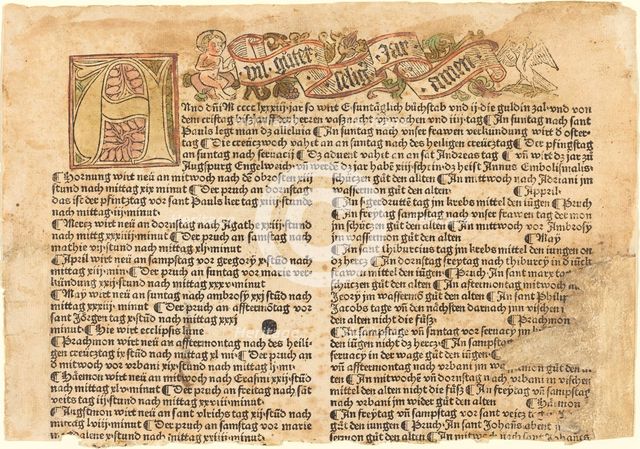 vil guter seliger Jar amen
Anno dñi M cccc lxxxiij jar so wirt E suntäglich büchstab vnd ij die guldin zal vnd von
dem cristag bis auff der herren vasznacht vij wochen vnd iiij tag ¶ An suntag nach sant
Pauls legt man dz alleluia ¶ An suntag nach vnser frawen verkündung wirt d oster
tag ¶ Die creüczwoch vahet an an suntag nach des heiligen creücztag ¶ Der pfingstag
an suntag nach seruacij ¶ Dz aduent vahet an an sãt Andreas tag ¶ Vñ wirt dz jar zů
Augspurg Engelweich vnd werdẽ dz jar habẽ xiij schein vnd dz heist Annus Embolismalis
¶ Hornung wirt neü an mitwoch nach dẽ obrosten xiij
stund nach mittag xix minut ¶ Der pruch an dornstag
das ist der pfintztag vor sant Pauls ker tag xiiij stund
nach mittag iij minut
¶ Mercz wirt neü an dornstag nach Agathe xxiij stund
nach mittag xxxiij minut ¶ Der pruch an samstag nach
mathie vij stund nach mittag xl minut
¶ April wirt neü an samstag vor gregorij x stũd nach
mittag xiij min ¶ Der pruch an suntag vor marie ver
kündung xxij stund nach mittag xxxv minut
¶ May wirt neü an suntag nach ambrosij xxj stũd nach
mittag xxxiij minut ¶ Der pruch an affermontag vor
sant Jörgen tag x stund nach mittag xxxj
minut ¶ Hie wirt ecclipsis
¶ Prachmon wirt neü an affermontag nach des heili
gen creücztag ix stũd nach mittag xl mi ¶ Der pruch an
d mitwoch vor vrbani xix stund nach mittag lj mi
¶ Häemon wirt neü an mitwoch nach Erasmi xxij stũd
nach mittag l minut ¶ Der pruch an freitag nach sãt
veits tag iij stund nach mittag xxxviij minut
¶ Augstmon wirt neü an sant vlrichs tag xij stũd nach
mittag lviij minut ¶ Der pruch an samstag vor marie
magdalene x stund nach mittag xxiij minut
wassermon güt den alten ¶ An mitwoch nach Adriani jm
¶ Appril
¶ An s gerdrutẽ tag jm krebs mittel den iügen ¶ Pruch
¶ An freÿtag vnd samstag nach vnser frawen tag der mon
im schüczen güt den alten ¶ An mitwoch vor Ambrosy
jm wassermon güt den alten ¶ May
¶ An sant thiburcius tag jm krebs mittel den iungen on
dz hercz ¶ An dornstag freÿtag nach thiburcij in d iückfrawẽ
mittel den iügen ¶ Pruch An sant marx tag
schüczen güt den alten ¶ An affermontag mitwoch
Jeorij jm wassermõ güt den alten ¶ An sant Philip
Jacobs tage vñ den nächsten darnach jm vischen
den alten nicht die füsz ¶ Prachmon
¶ An freÿtag vñ samstag vor seruacij jm
den iügen nicht dz hercz ¶ An samstag
seruacy in der wage güt den iügen
vñ affermontag nach vrbani jm wassermon güt den
¶ An mitwoch vñ dornstag nach vrbani in vischen
mittel den alten nicht die füsz ¶ An freÿtag vñ samstag
vrbani jm wider güt den alten ¶ Häemon
¶ An freÿtag vñ samstag vor sant veits tag
den alten ¶ Pruch ¶ An sant Johañs abent
sermon güt den alten ¶ An mitwoch nach sant Johañs